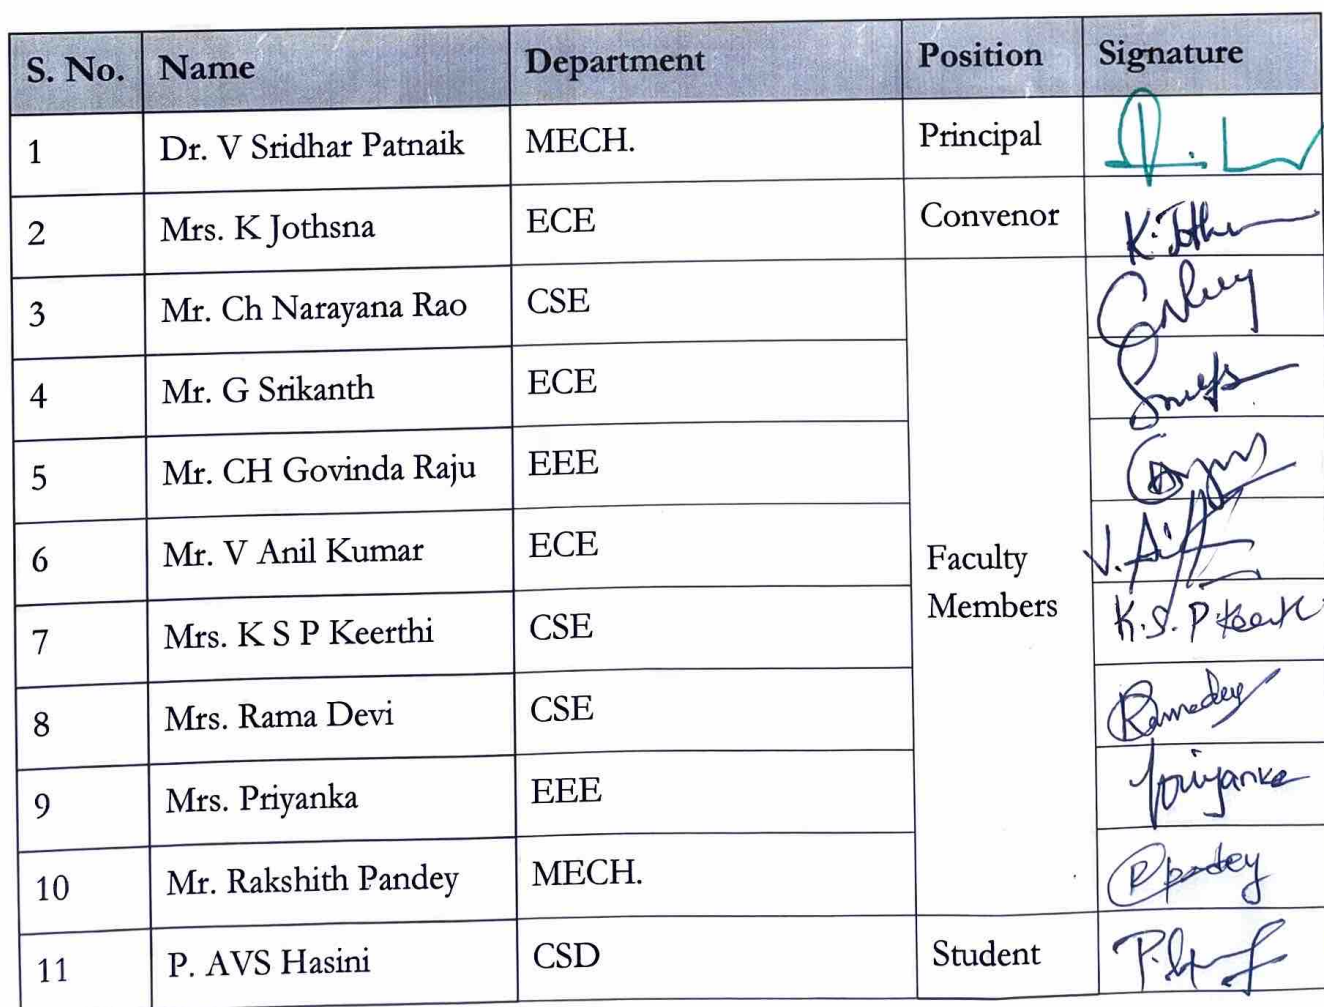 S. No. Name Department Position Signature
1 Dr. V Sridhar Patnaik MECH. Principal
2 Mrs. K Jothsna ECE Convenor
3 Mr. Ch Narayana Rao CSE
4 Mr. G Srikanth ECE
5 Mr. CH Govinda Raju EEE
6 Mr. V Anil Kumar ECE Faculty
Members
7 Mrs. K S P Keerthi CSE K.S.P Keerthi
8 Mrs. Rama Devi CSE Ramadevi
9 Mrs. Priyanka EEE Priyanka
10 Mr. Rakshith Pandey MECH.
11 P. AVS Hasini CSD Student